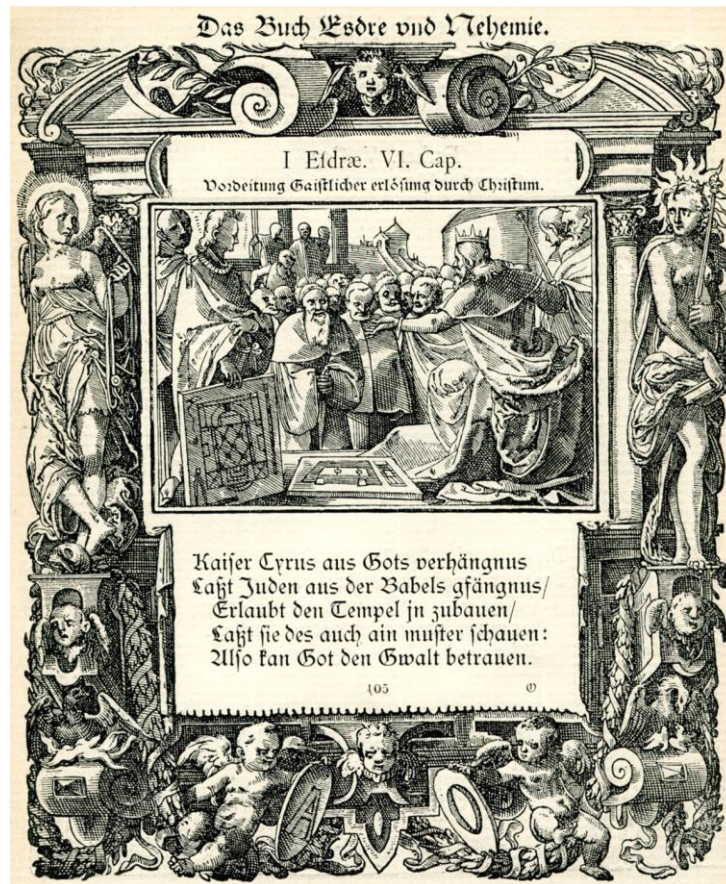 Das Buch Esdre vnd Nehemie.
I Eſdræ. VI. Cap.
Vorbeitung Gaiſtlicher erlöſung durch Chriſtum.
Kaiſer Cyrus aus Gots verhängnus
Laßt Juden aus der Babels gfängnus/
Erlaubt den Tempel jn zubauen/
Laßt ſie des auch ain muſter ſchauen:
Alſo kan Got den Gwalt betrauen.
105
A
O